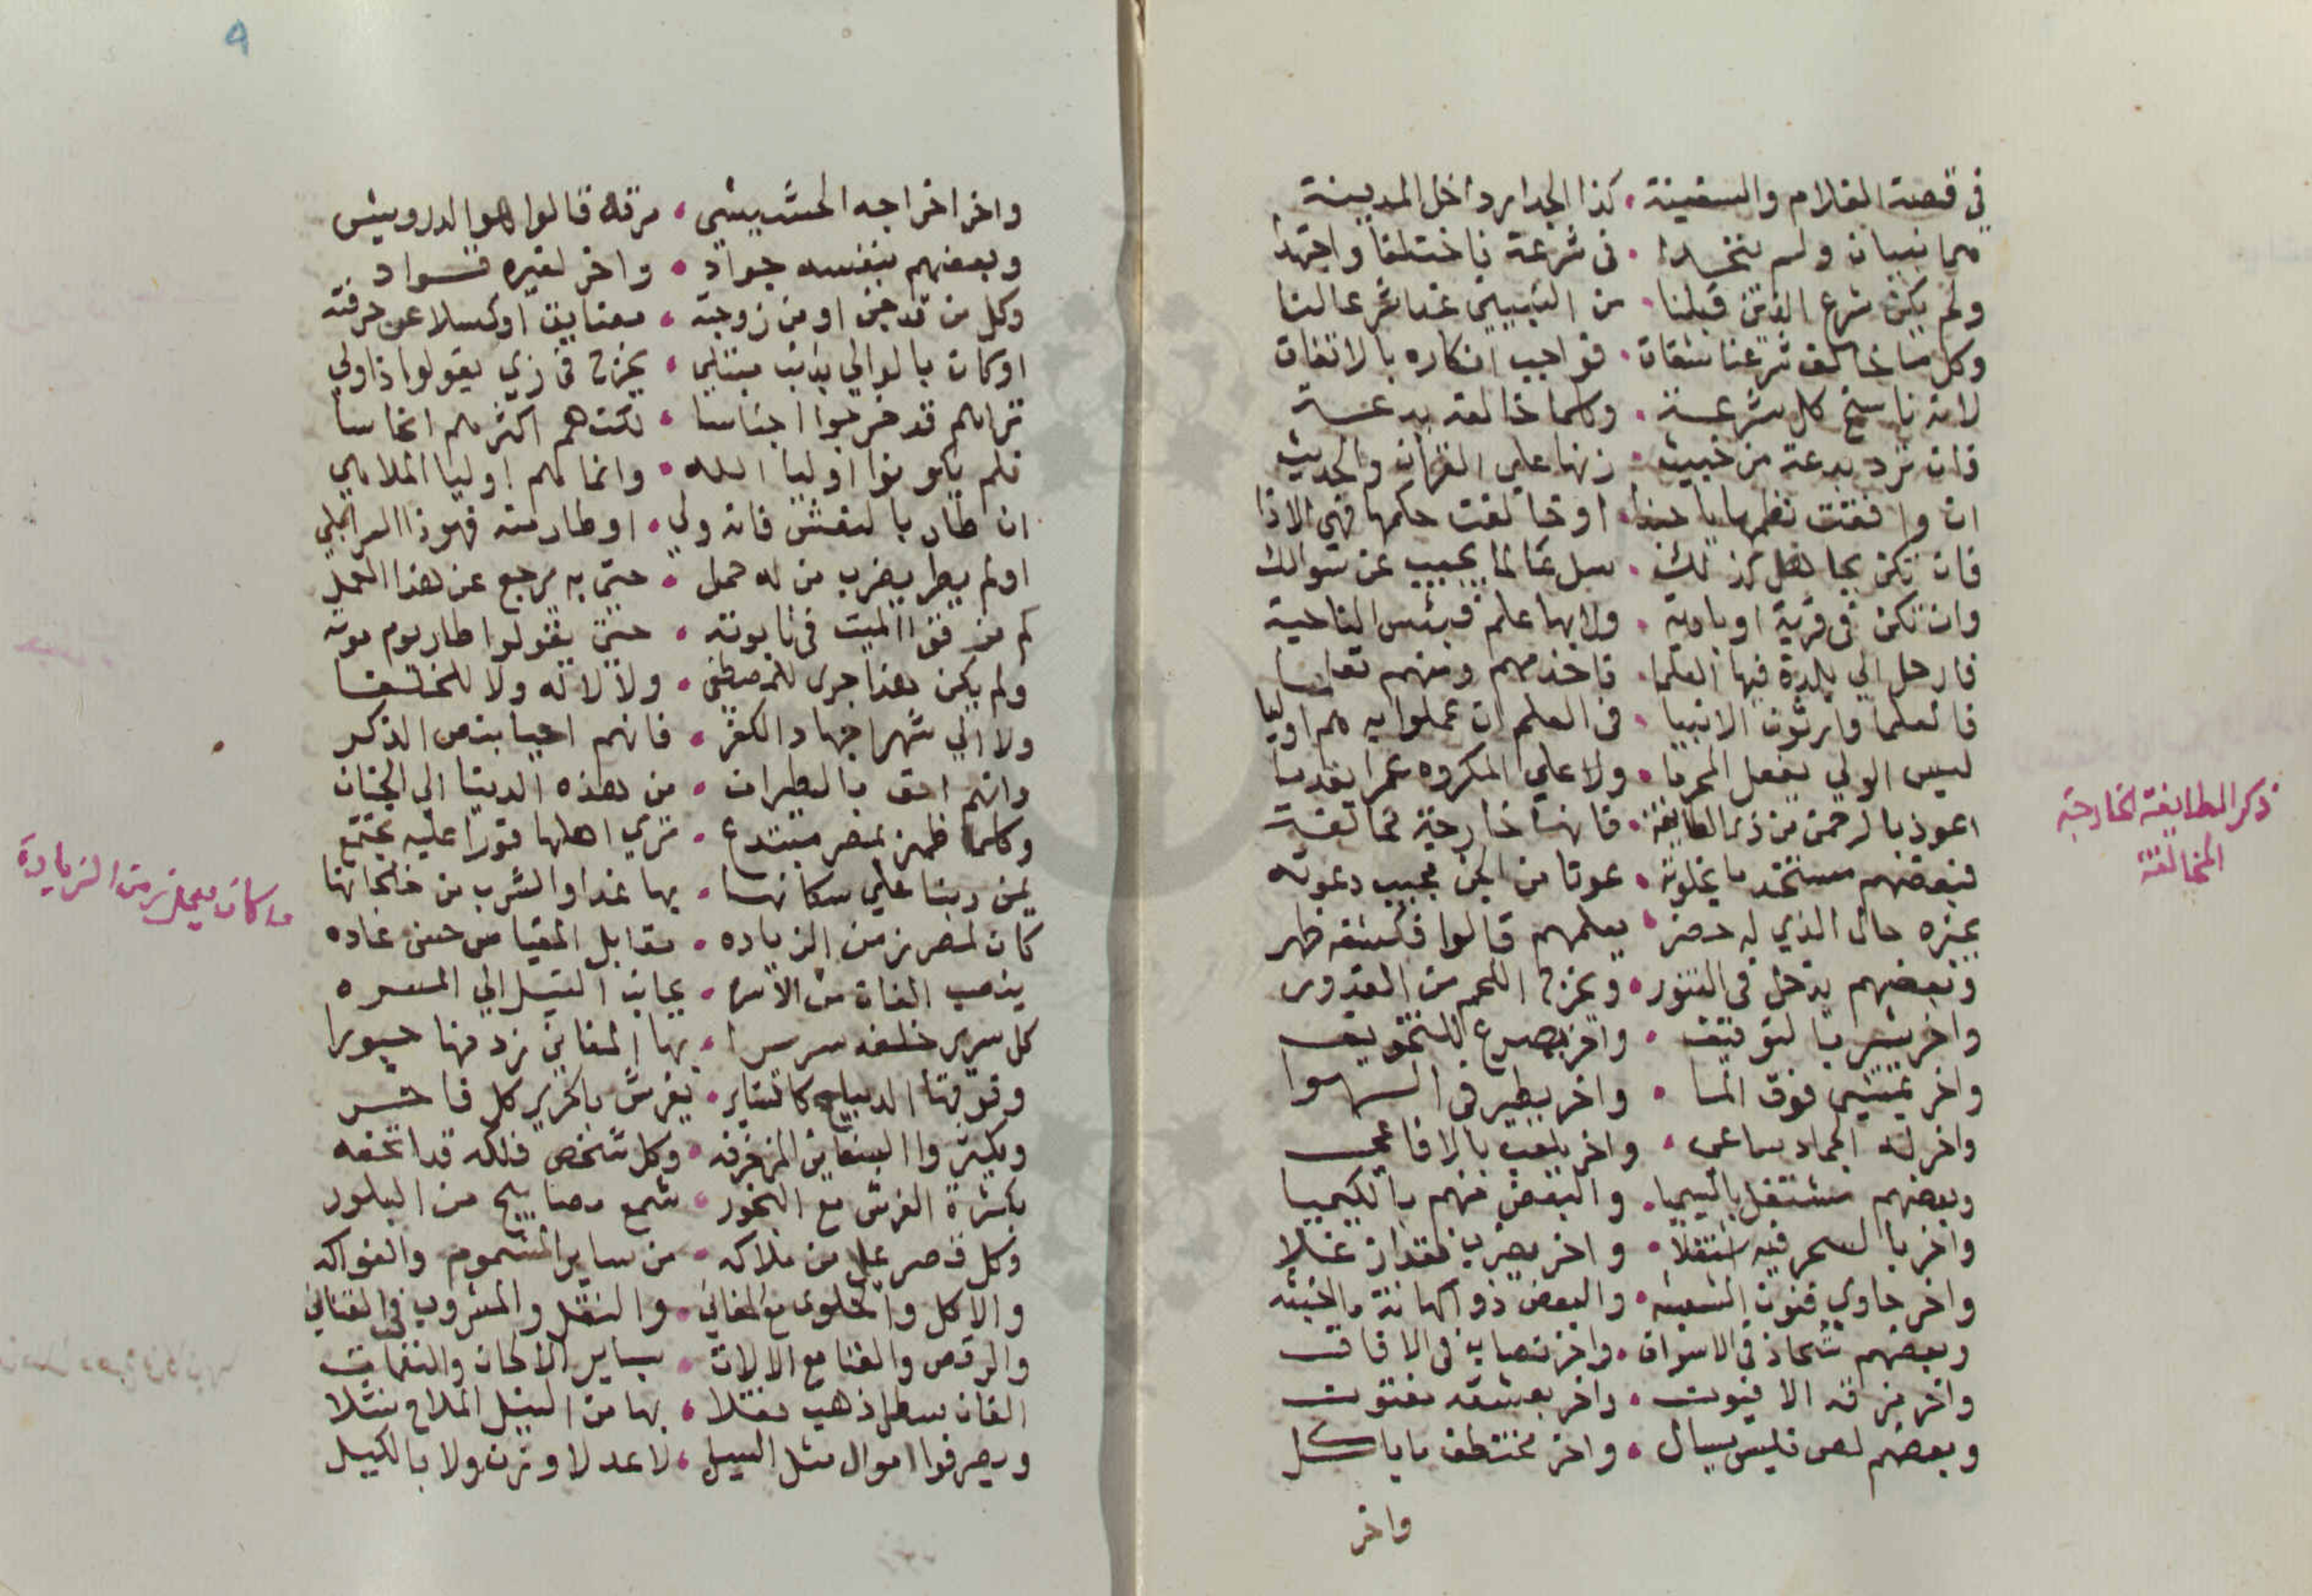 في قصة الغلام والسفينة • كذا الجدار داخل المدينة
هما نبيان ولم يتحدا • في شرعة فاختلفا واجتهدا
ولم يكن شرع الذين قبلنا • من النبيين غدا شرعا لنا
وكل ما خالف شرعنا شقاق • فواجب انكاره بالاتفاق
لانه ناسخ كل شرعة • وكلما خالفه بدعة
فان ترد بدعة من خبيث • زنها علي القران والحديث
ان وافقت نظمها ياحبذا • او خالفت حكمها فهي الاذا
فان تكن بجاهل كذلك • سل عالما يجيب عن سوالك
وان تكن في قرية او بادية • ولا بها علم فبئس الناحية
فارحل الي بلدة فيها العلما • فاخدمهم ومنهم تعلما
فالعلما وارثون الانبيا • في العلم ان عملوا به هم اوليا
ليس الولي يفعل المحرما • ولا علي المكروه عمرا يقدما
اعوذ بالرحمن من ذي الطايفة • فانها خارجة مخالفة
ذكر الطايفة الخارجة
المخالفة
فبعضهم مستخدما بخلوته • عونا من الجن مجيب دعوته
يخبره حال الذي له حضر • يعلمهم قالوا فكشفه ظهر
وبعضهم يدخل في التنور • ويخرج اللحم من القدور
واخر يشير بالتوقيف • واخر يصرع للتخويف
واخر يمشي فوق الما • واخر يطير في الهوا
واخر له الجماد ساعي • واخر يلعب بالافاعي
وبعضهم مشتغل بالسيما • والبعض منهم بالكيميا
واخر بالسحر فيه اشتغلا • واخر يضرب مقداز غلا
واخر حاوي فنون الشعبثه • والبعض ذو اكهانة مالخبثه
وبعضهم شحاذ في الاسواق • واخر نصاب في الافاق
واخر يزقه الافيون • واخر بعشقه مفتون
وبعضهم لص فليس يسال • واخر مختطف ما ياكل
واخر
واخر اخراجه الحشيشي • مزقه قالوا هو الدرويش
وبعضهم بنفسه جواد • واخر لغيره قواد
وكل من قد جن او من زوجته • مضايق او كسلا عن حرفته
او كان بالوالي بذنب مبتلي • يخرج في زي يقولوا ذا ولي
تراهم قد خرجوا اجناسا • لكنهم اكثرهم انحاسا
فلم يكونوا اوليا الله • وانما هم اوليا الملاهي
ان طار بالنعش فانه ولي • او طار منه فهو ذا السر الجلي
او لم يطر يضرب من له حمل • حتي به يرجع عن هذا العمل
كم من فتوا الميت في تابوته • حتي يقولوا طار يوم موته
ولم يكن هذا جرى للمصطفى • ولا لاله ولا للخلفا
ولا الي شهرا جهاد الكفر • فانهم احيا بنص الذكر
وانهم احق بالطيران • من هذه الدنيا الي الجنان
وكلما ظهر بمصر مبتدع • تري اهلها فورا عليه تجتمع
يمن ربنا علي سكانها • بها غدا والشرب من خلجانها
كان لمصر زمن الزياده • مقابل المقياس حسن عاده
ما كان يعمل زمن الزيادة
ينصب الفان من الاسره • بجانب النيل الي المسره
كل سرير خلفه سريرا • بها المغاني زدفها حبورا
وفوقها الديباج كالستاير • يفرش بالحرير كل فاخر
ويكثروا السفاين المزخرفه • وكل شخص فلكه قد اتحفه
بكثرة الفرش مع البخور • شمع مصابيح من البلور
وكل قصر علي من ملاكه • من ساير المشموم والفواكه
والاكل والحلوى مع المغاني • والنقل والمشروب في القناني
والرقص والغنا مع الالات • بساير الالحان والنغمات
الفان سطل ذهب مقتلا • بها من النيل الملاح تنتلا
ويصرفوا اموال مثل السيل • لا عد لا وزن ولا بالكيل